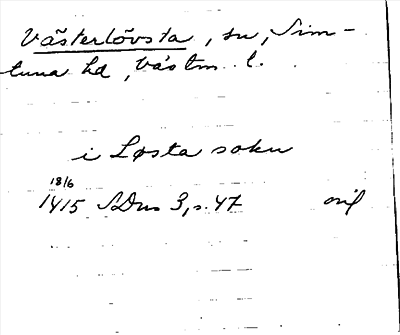 Västerlövsta, sn, Sim-
tuna hd, Västm. l.
i Løsta soku
18/6
1415 SDns 3, s. 47 oril